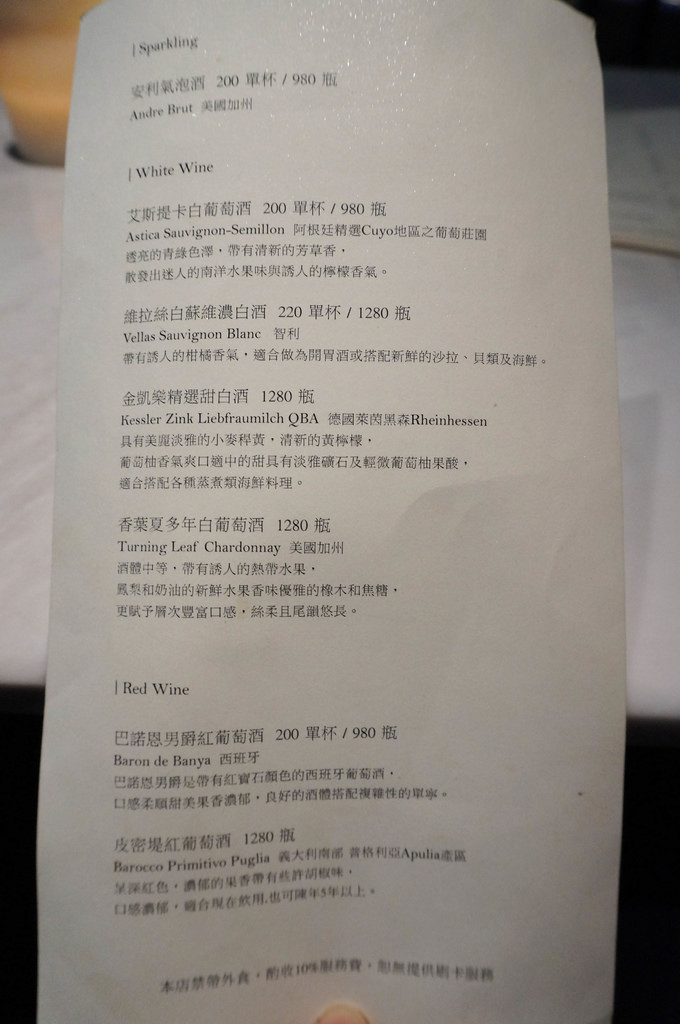 | Sparkling
安利氣泡酒 200 單杯 / 980 瓶
Andre Brut 美國加州
| White Wine
艾斯提卡白葡萄酒 200 單杯 / 980 瓶
Astica Sauvignon-Semillon 阿根廷精選Cuyo地區之葡萄莊園
透亮的青綠色澤，帶有清新的芳草香，
散發出迷人的南洋水果味與誘人的檸檬香氣。
維拉絲白蘇維濃白酒 220 單杯 / 1280 瓶
Vellas Sauvignon Blanc 智利
帶有誘人的柑橘香氣，適合做為開胃酒或搭配新鮮的沙拉、貝類及海鮮。
金凱樂精選甜白酒 1280 瓶
Kessler Zink Liebfraumilch QBA 德國萊茵黑森Rheinhessen
具有美麗淡雅的小麥稈黃，清新的黃檸檬，
葡萄柚香氣爽口適中的甜具有淡雅礦石及輕微葡萄柚果酸，
適合搭配各種蒸煮類海鮮料理。
香葉夏多年白葡萄酒 1280 瓶
Turning Leaf Chardonnay 美國加州
酒體中等，帶有誘人的熱帶水果，
鳳梨和奶油的新鮮水果香味優雅的橡木和焦糖，
更賦予層次豐富口感，絲柔且尾韻悠長。
| Red Wine
巴諾恩男爵紅葡萄酒 200 單杯 / 980 瓶
Baron de Banya 西班牙
巴諾恩男爵是帶有紅寶石顏色的西班牙葡萄酒，
口感柔順甜美果香濃郁，良好的酒體搭配複雜性的單寧。
皮密堤紅葡萄酒 1280 瓶
Barocco Primitivo Puglia 義大利南部 普格利亞Apulia產區
呈深紅色，濃郁的果香帶有些許胡椒味，
口感濃郁，適合現在飲用,也可陳年5年以上。
本店禁帶外食，酌收10%服務費，恕無提供刷卡服務